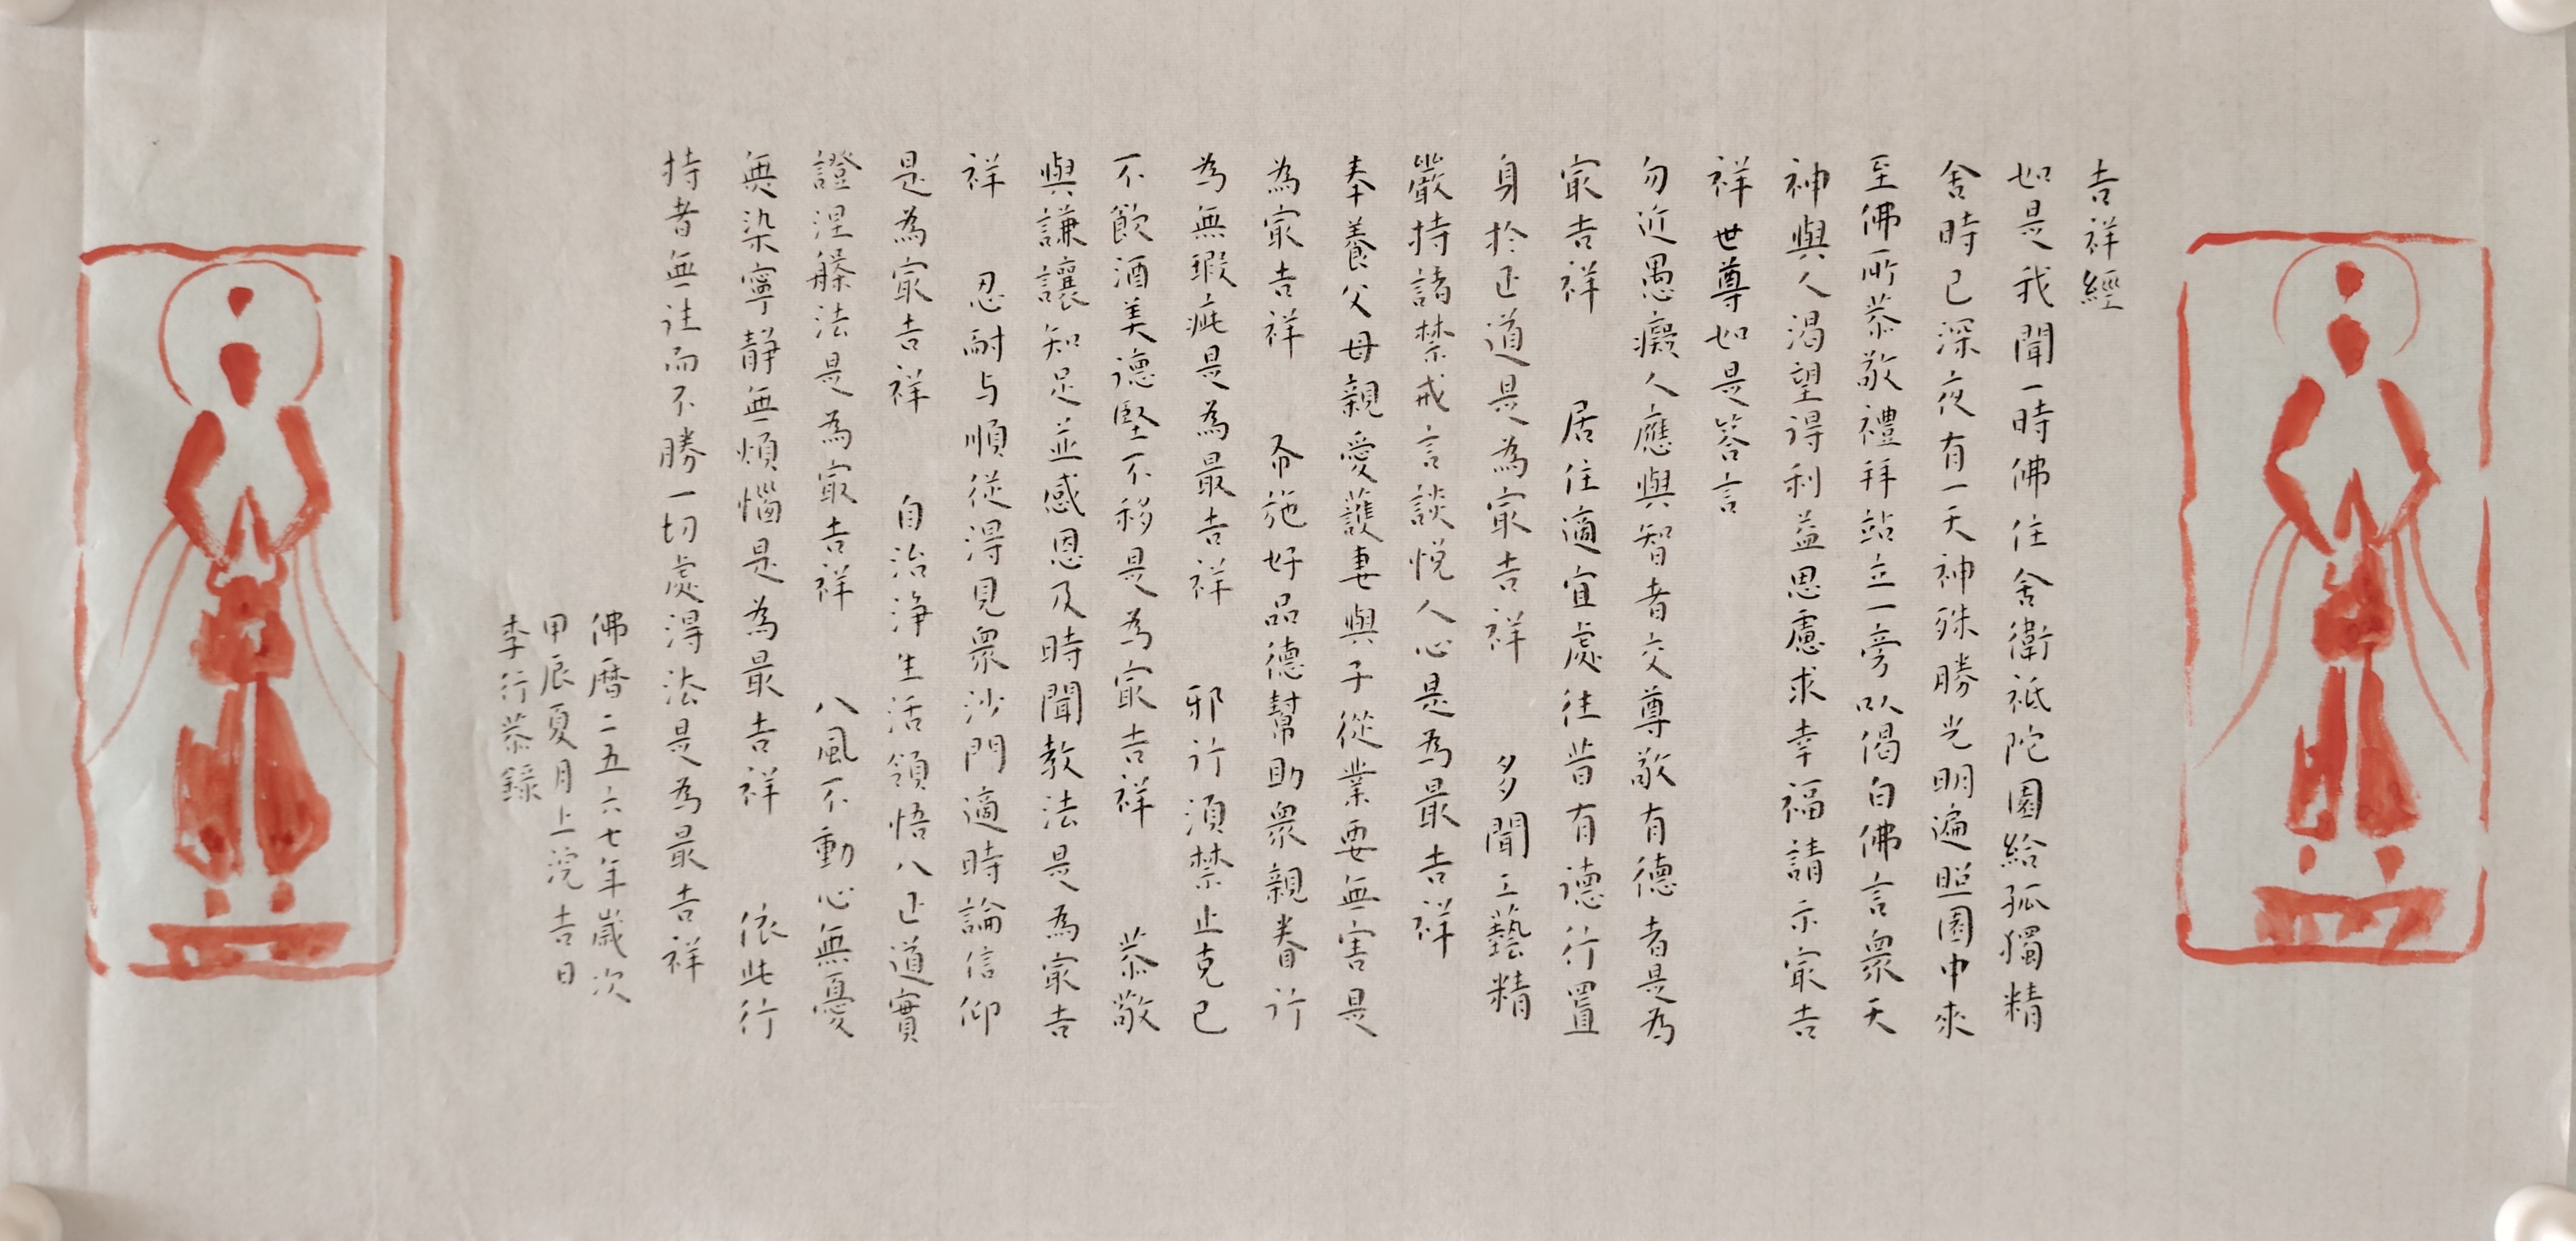 吉祥經
如是我聞一時佛住舍衛祗陀園給孤獨精
舍時已深夜有一天神殊勝光明遍照園中來
至佛所恭敬禮拜站立一旁以偈白佛言衆天
神與人渴望得利益思慮求幸福請示冣吉
祥世尊如是答言
勿近愚癡人應與智者交尊敬有德者是為
冣吉祥 居住適宜處往昔有德行置
身於正道是為冣吉祥 多聞工藝精
嚴持諸禁戒言談悅人心是為最吉祥
奉養父母親愛護妻與子從業要無害是
為冣吉祥 布施好品德幫助衆親眷行
為無瑕疵是為最吉祥 邪行須禁止克己
不飲酒美德堅不移是為冣吉祥 恭敬
與謙讓知足並感恩及時聞教法是為冣吉
祥 忍耐与順從得見衆沙門適時論信仰
是為冣吉祥 自治淨生活領悟八正道實
證涅槃法是為冣吉祥 八風不動心無憂
無染寧靜無煩惱是為最吉祥 依此行
持者無往而不勝一切處得法是為最吉祥
佛曆二五六七年歲次
甲辰夏月上浣吉日
李行恭錄